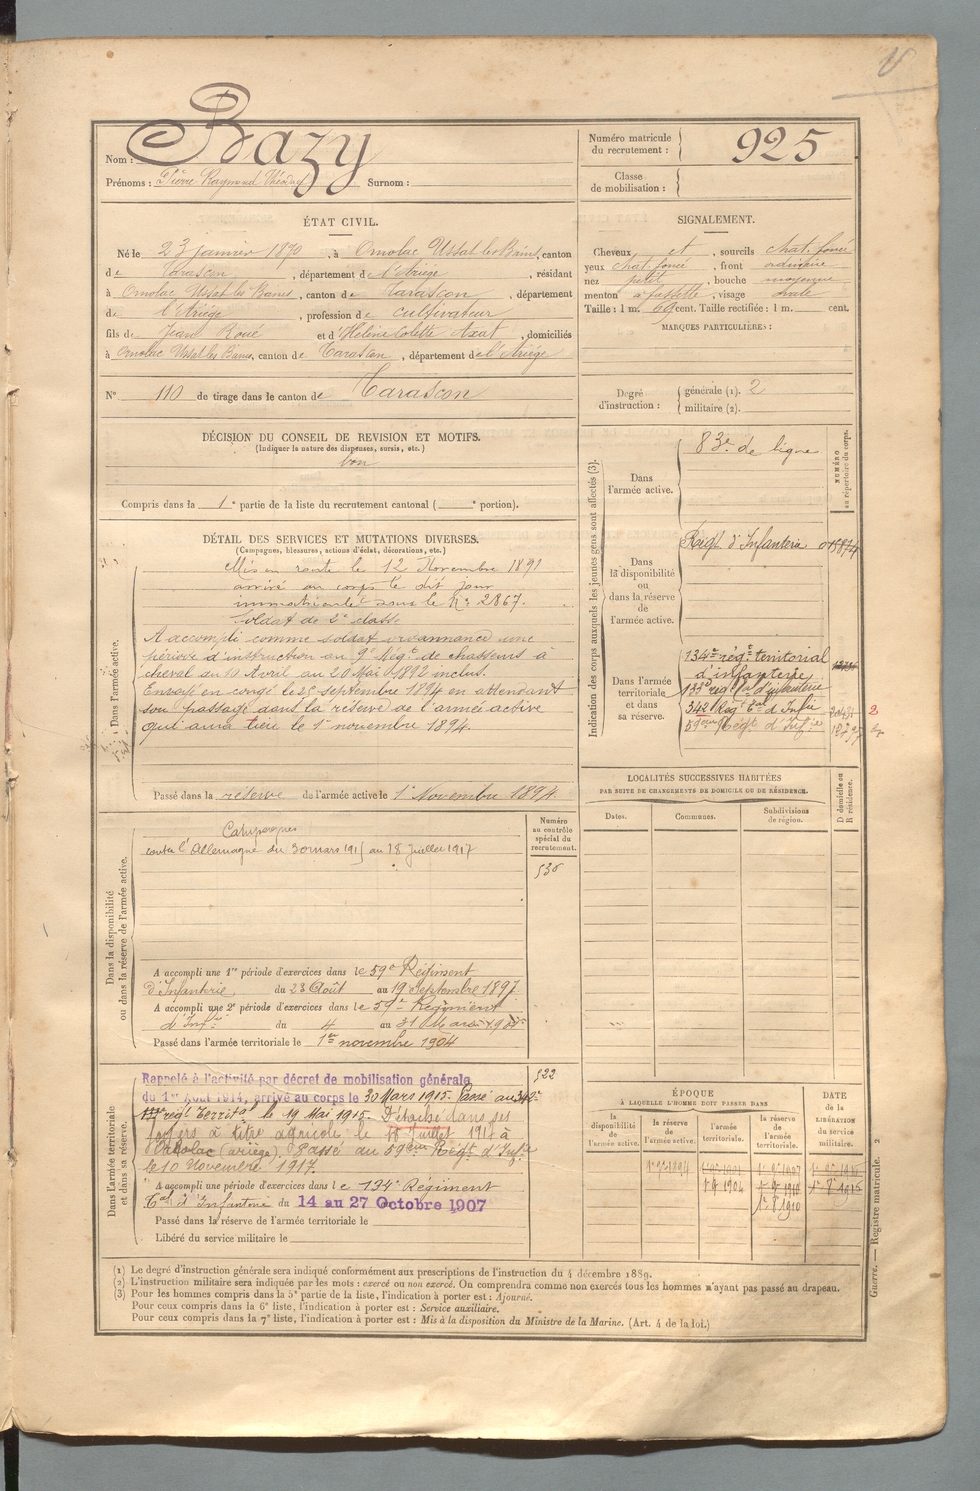 Nom : Bazy
Prénoms : Pierre Raymond Théodore Surnom :
Numéro matricule du recrutement : 925
Classe de mobilisation :
ÉTAT CIVIL.
Né le 23 janvier 1870, à Ornolac Ussat les Bains, canton
de Tarascon, département de l'Ariège, résidant
à Ornolac Ussat les Bains, canton de Tarascon, département
de l'Ariège, profession de cultivateur
fils de Jean Roué et d'Hélène Colette Axat, domiciliés
à Ornolac Ussat les Bains, canton de Tarascon, département de l'Ariège
N° 110 de tirage dans le canton de Tarascon
SIGNALEMENT.
Cheveux et, sourcils chat. foncé
yeux chat. foncé, front ordinaire
nez petit, bouche moyenne
menton à fossette, visage ovale
Taille : 1 m. 69 cent. Taille rectifiée : 1 m. cent.
MARQUES PARTICULIÈRES :
Degré d'instruction : générale (1). 2
militaire (2).
DÉCISION DU CONSEIL DE REVISION ET MOTIFS.
(Indiquer la nature des dispenses, sursis, etc.)
bon
Compris dans la 1e partie de la liste du recrutement cantonal ( e portion).
DÉTAIL DES SERVICES ET MUTATIONS DIVERSES.
(Campagnes, blessures, actions d'éclat, décorations, etc.)
Dans l'armée active.
Mis en route le 12 Novembre 1891
arrivé au corps le dit jour
immatriculé sous le N° 2867.
Soldat de 2e classe
A accompli comme soldat ordonnance une
période d'instruction au 9e Régt de chasseurs à
cheval du 10 Avril au 20 Mai 1892 inclus.
Envoyé en congé le 25 septembre 1894 en attendant
son passage dans la réserve de l'armée active
qui aura lieu le 1er novembre 1894.
Passé dans la réserve de l'armée active le 1er Novembre 1894.
Indication des corps auxquels les jeunes gens sont affectés (3).
NUMÉRO au répertoire du corps.
Dans l'armée active.
83e de ligne
Dans la disponibilité ou dans la réserve de l'armée active.
Régt. d'Infanterie 015874
Dans l'armée territoriale et dans sa réserve.
134e régt territorial
d'infanterie
135e régt tal d'infanterie
342e Régt tal d'Infie
59eme Régt d'Infie
LOCALITÉS SUCCESSIVES HABITÉES
PAR SUITE DE CHANGEMENTS DE DOMICILE OU DE RÉSIDENCE.
Dates. Communes. Subdivisions de région. D domicile ou R résidence.
Dans la disponibilité ou dans la réserve de l'armée active.
Numéro au contrôle spécial du recrutement.
Campagnes
contre l'Allemagne du 30 mars 1915 au 18 Juillet 1917
536
A accompli une 1re période d'exercices dans le 59e Régiment
d'Infanterie du 23 Août au 19 Septembre 1897.
A accompli une 2e période d'exercices dans le 59e Régiment
d'Infie du 4 au 31 Mars
Passé dans l'armée territoriale le 1er novembre 1904
Dans l'armée territoriale et dans sa réserve.
522
Rappelé à l'activité par décret de mobilisation générale
du 1er Août 1914, arrivé au corps le 30 Mars 1915. Passé au 342e
régt Territal le 19 Mai 1915. Détaché dans ses
foyers à titre agricole le 18 Juillet 1917 à
Ornolac (ariège). Passé au 59eme Régt d'Infie
le 10 Novembre 1917.
A accompli une période d'exercices dans le 134e Régiment
Tal d'Infanterie du 14 au 27 Octobre 1907
Passé dans la réserve de l'armée territoriale le
Libéré du service militaire le
ÉPOQUE
À LAQUELLE L'HOMME DOIT PASSER DANS
la disponibilité de l'armée active. la réserve de l'armée active. l'armée territoriale. la réserve de l'armée territoriale.
DATE de la LIBÉRATION du service militaire.
(1) Le degré d'instruction générale sera indiqué conformément aux prescriptions de l'instruction du 4 décembre 1889.
(2) L'instruction militaire sera indiquée par les mots : exercé ou non exercé. On comprendra comme non exercés tous les hommes n'ayant pas passé au drapeau.
(3) Pour les hommes compris dans la 5e partie de la liste, l'indication à porter est : Ajourné.
Pour ceux compris dans la 6e liste, l'indication à porter est : Service auxiliaire.
Pour ceux compris dans la 7e liste, l'indication à porter est : Mis à la disposition du Ministre de la Marine. (Art. 4 de la loi.)
Guerre. — Registre matricule. 2